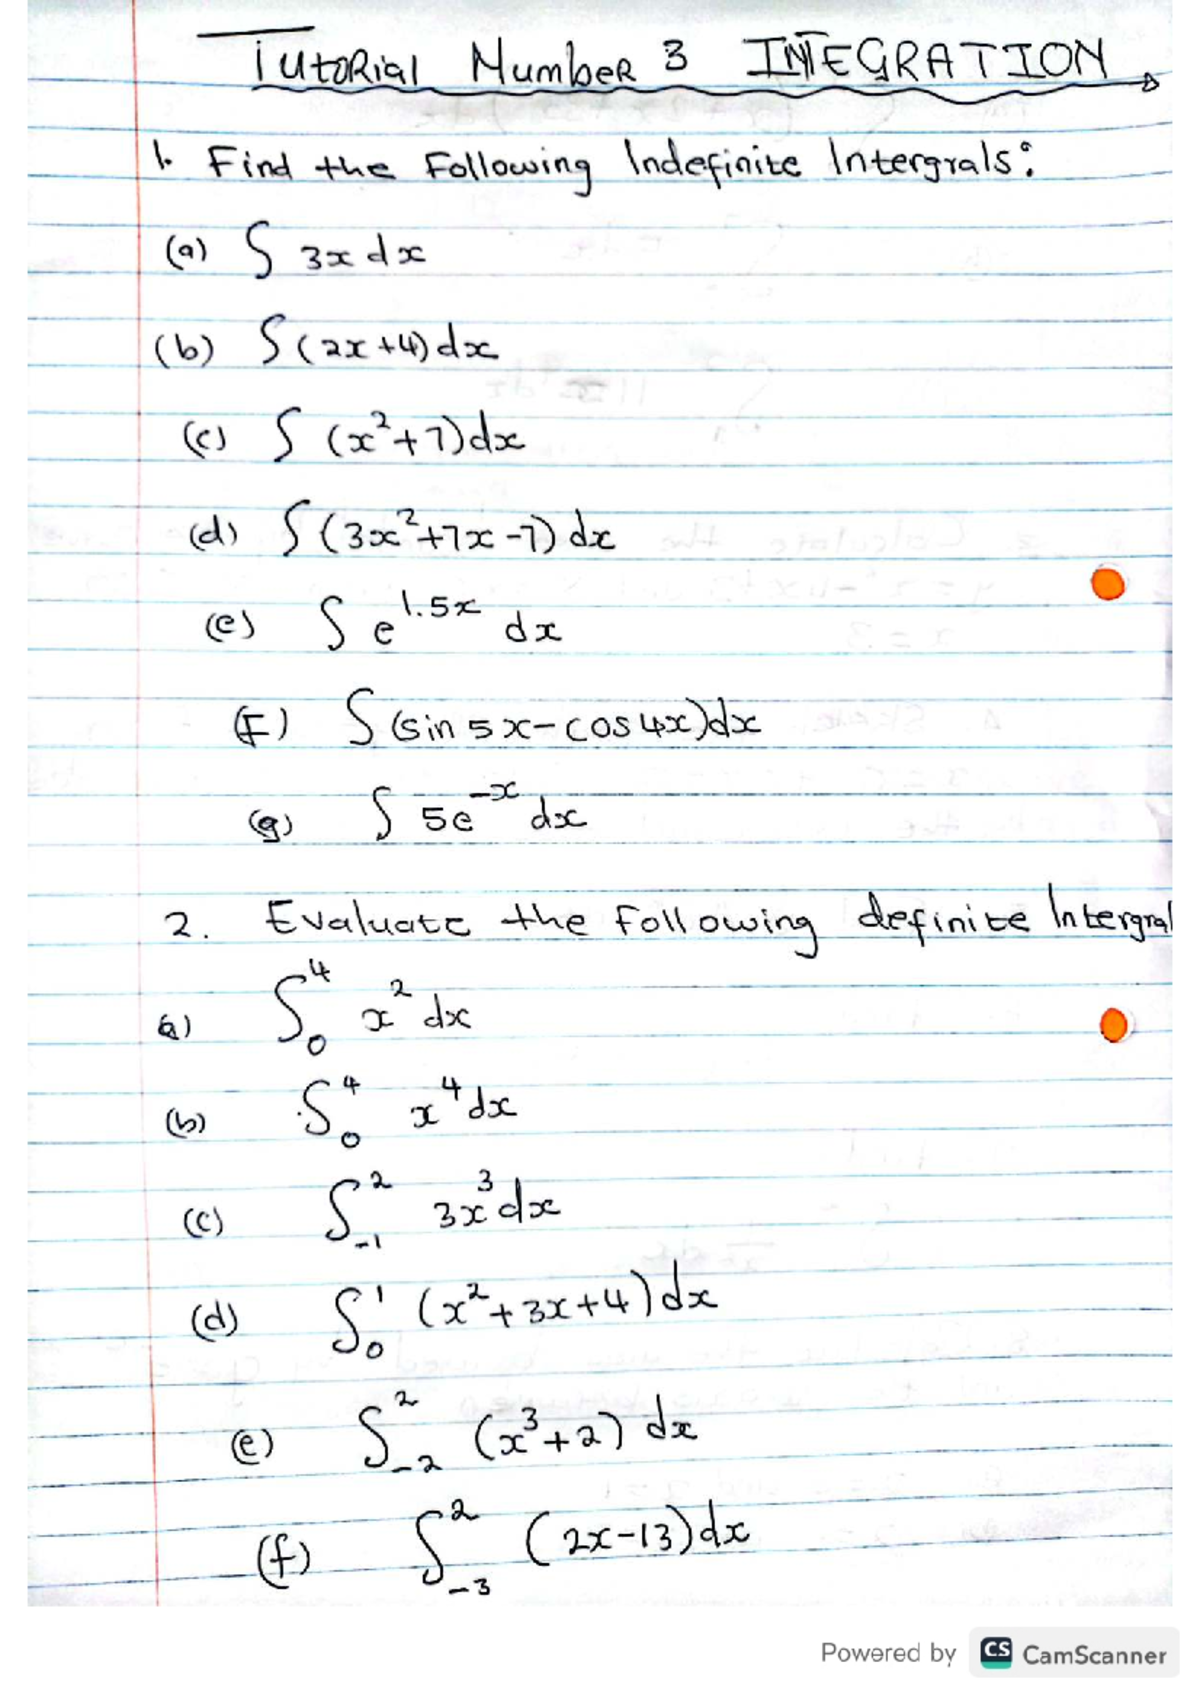 Tutorial Number 3 INTEGRATION
1. Find the Following Indefinite Intergrals:
(a) ∫ 3x dx
(b) ∫ (2x+4) dx
(c) ∫ (x²+7) dx
(d) ∫ (3x²+7x-7) dx
(e) ∫ e^1.5x dx
(F) ∫ (sin 5x - cos 4x) dx
(g) ∫ 5e^-x dx
2. Evaluate the following definite Intergral
(a) ∫₀⁴ x² dx
(b) ∫₀⁴ x⁴ dx
(c) ∫₋₁² 3x³ dx
(d) ∫₀¹ (x²+3x+4) dx
(e) ∫₋₂² (x³+2) dx
(f) ∫₋₃² (2x-13) dx
Powered by CS CamScanner